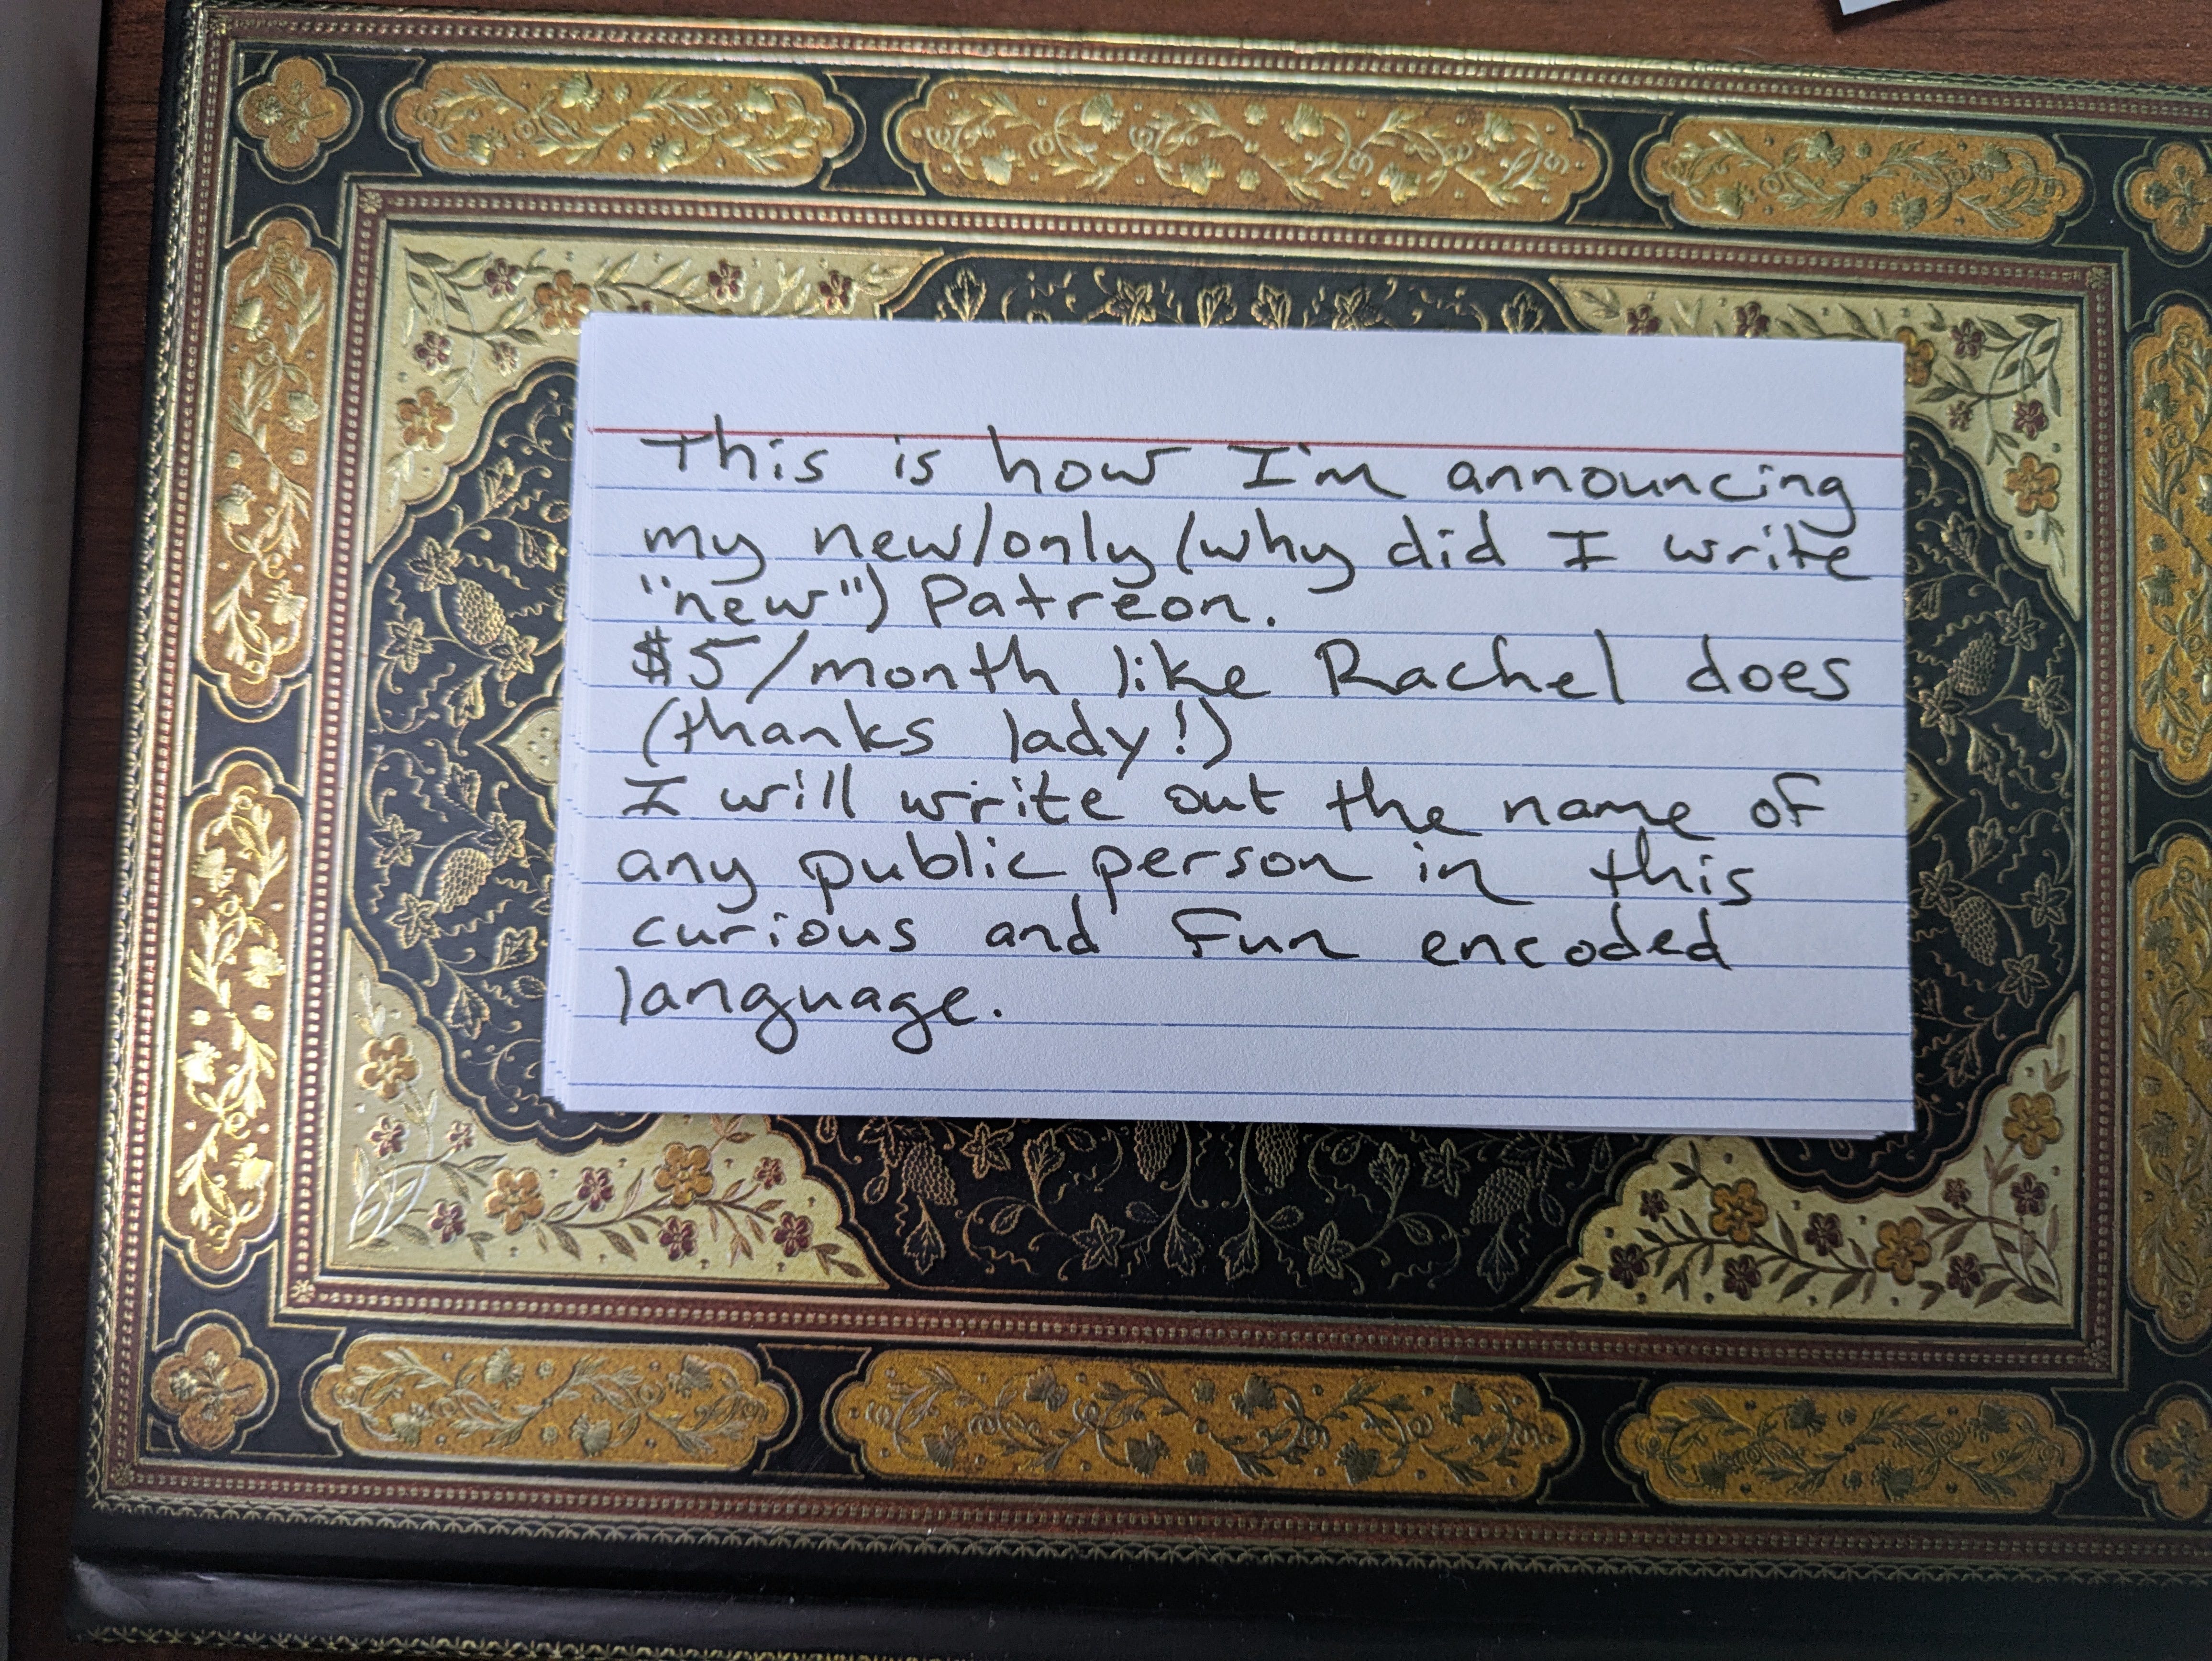 This is how I'm announcing
my new/only (why did I write
"new") Patreon.
$5/month like Rachel does
(thanks lady!)
I will write out the name of
any public person in this
curious and fun encoded
language.